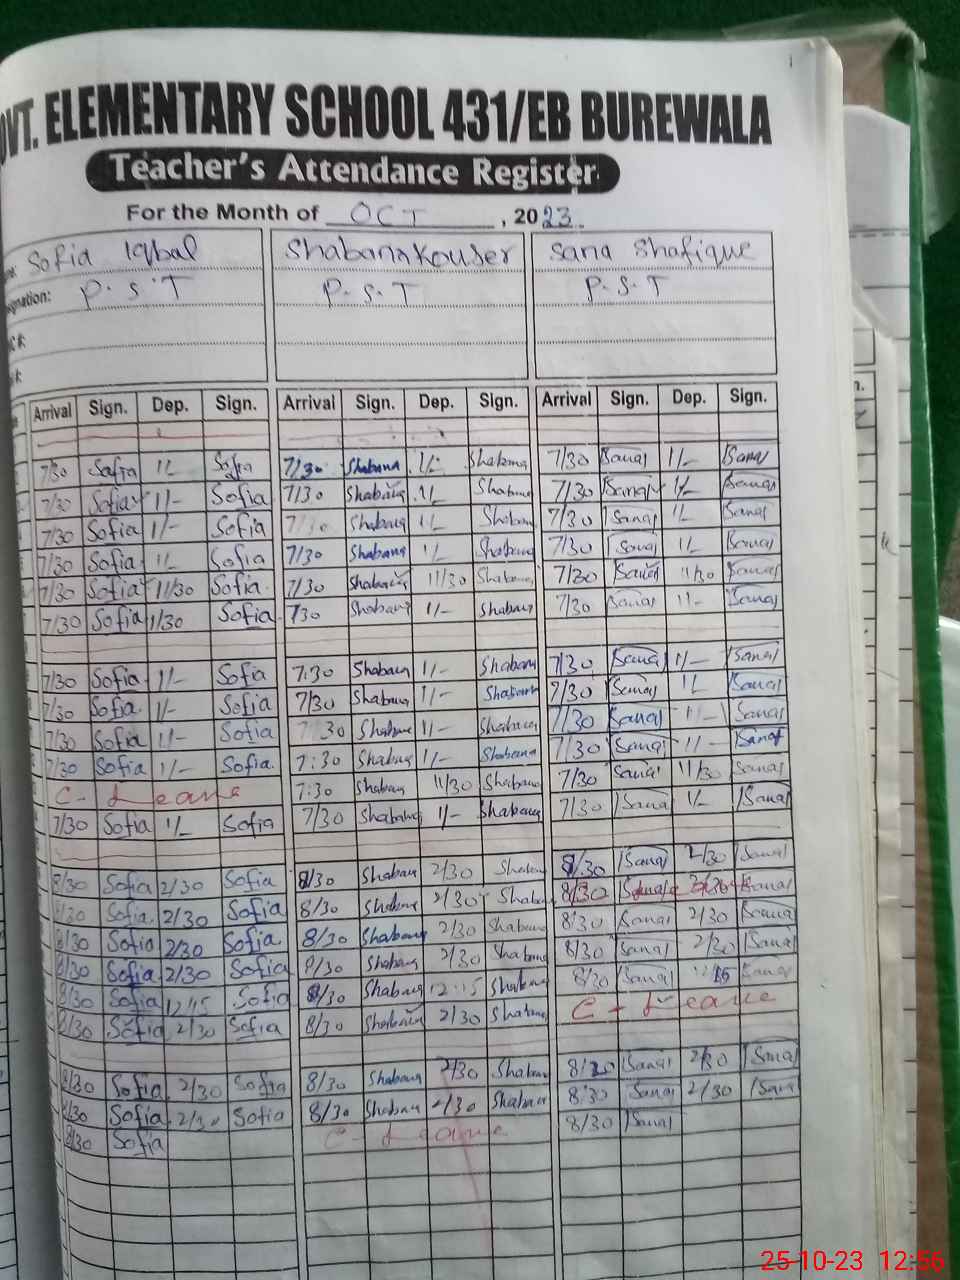 OVT. ELEMENTARY SCHOOL 431/EB BUREWALA
Teacher's Attendance Register
For the Month of OCT , 2023
Sofia Iqbal Shabana Kouser Sana Shafique
signation: P.S.T P.S.T P.S.T
Arrival Sign. Dep. Sign. Arrival Sign. Dep. Sign. Arrival Sign. Dep. Sign.
7/30 Safia 1/- Sofia 7/30 Shabana 1/- Shabana 7/30 Sana 1/- Sana
7/30 Sofia 1/- Sofia 7/30 Shabana 1/- Shabana 7/30 Sana 1/- Sana
7/30 Sofia 1/- Sofia 7/30 Shabana 1/- Shabana 7/30 Sana 1/- Sana
7/30 Sofia 1/- Sofia 7/30 Shabana 1/- Shabana 7/30 Sana 1/- Sana
7/30 Sofia 11/30 Sofia 7/30 Shabana 11/30 Shabana 7/30 Sana 11/30 Sana
7/30 Sofia 1/30 Sofia 730 Shabana 1/- Shabana 7/30 Sana 1/- Sana
7/30 Sofia 1/- Sofia 7:30 Shabana 1/- Shabana 7/30 Sana 1/- Sana
7/30 Sofia 1/- Sofia 7/30 Shabana 1/- Shabana 7/30 Sana 1/- Sana
7/30 Sofia 1/- Sofia 30 Shabana 1/- Shabana 7/30 Sana 1/- Sana
7/30 Sofia 1/- Sofia 7:30 Shabana 1/- Shabana 7/30 Sana 1/- Sana
C - Leave 7:30 Shabana 11/30 Shabana 7/30 Sana 11/30 Sana
7/30 Sofia 1/- Sofia 7/30 Shabana 1/- Shabana 7/30 Sana 1/- Sana
8/30 Sofia 2/30 Sofia 8/30 Shabana 2/30 Shabana 8/30 Sana 2/30 Sana
8/30 Sofia 2/30 Sofia 8/30 Shabana 2/30 Shabana 8/30 Sana
8/30 Sofia 2/30 Sofia 8/30 Shabana 2/30 Shabana 8/30 Sana 2/30 Sana
8/30 Sofia 2/30 Sofia 8/30 Shabana 2/30 Shabana 8/30 Sana 2/30 Sana
8/30 Sofia 12:15 Sofia 8/30 Shabana 12:15 Shabana 8/30 Sana Sana
8/30 Sofia 2/30 Sofia 8/30 Shabana 2/30 Shabana C - Leave
8/30 Sofia 2/30 Sofia 8/30 Shabana 2/30 Shabana 8/30 Sana 2/30 Sana
8/30 Sofia 2/30 Sofia 8/30 Shabana 2/30 Shabana 8/30 Sana 2/30 Sana
8/30 Sofia C - Leave 8/30 Sana
25-10-23 12:56